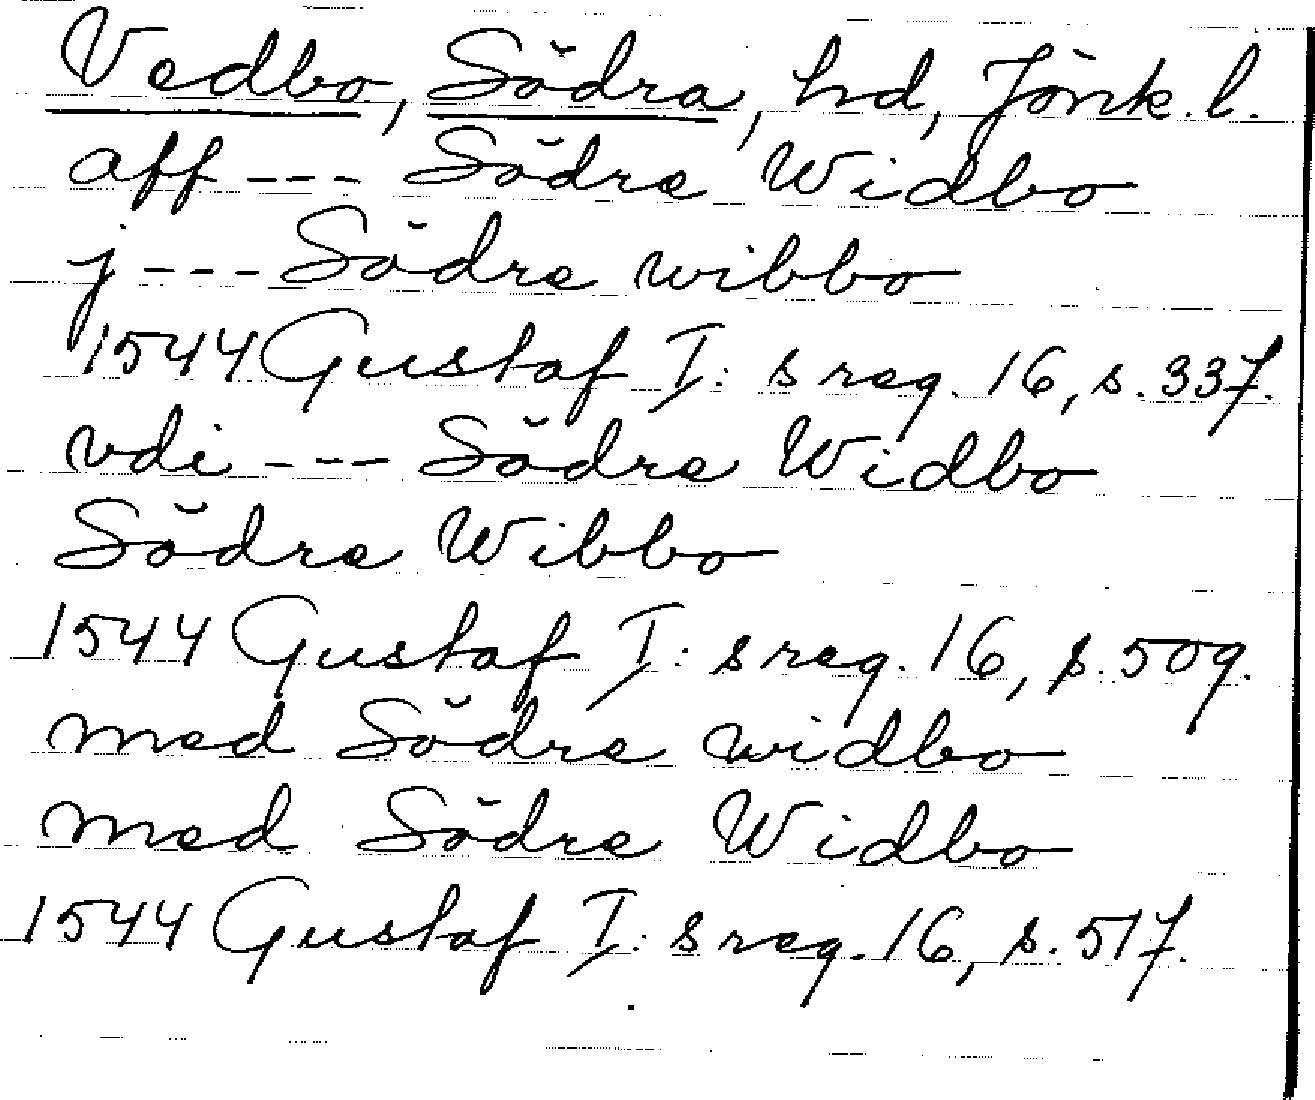 Vedbo, Södra, hd, Jönk. l.
aff --- Södre Widbo
j --- Södre wibbo
1544 Gustaf I: s reg. 16, s. 337.
vdi --- Södre Widbo
Södre Wibbo
1544 Gustaf I: s reg. 16, s. 509.
med Södre widbo
med Södre Widbo
1544 Gustaf I: s reg. 16, s. 517.